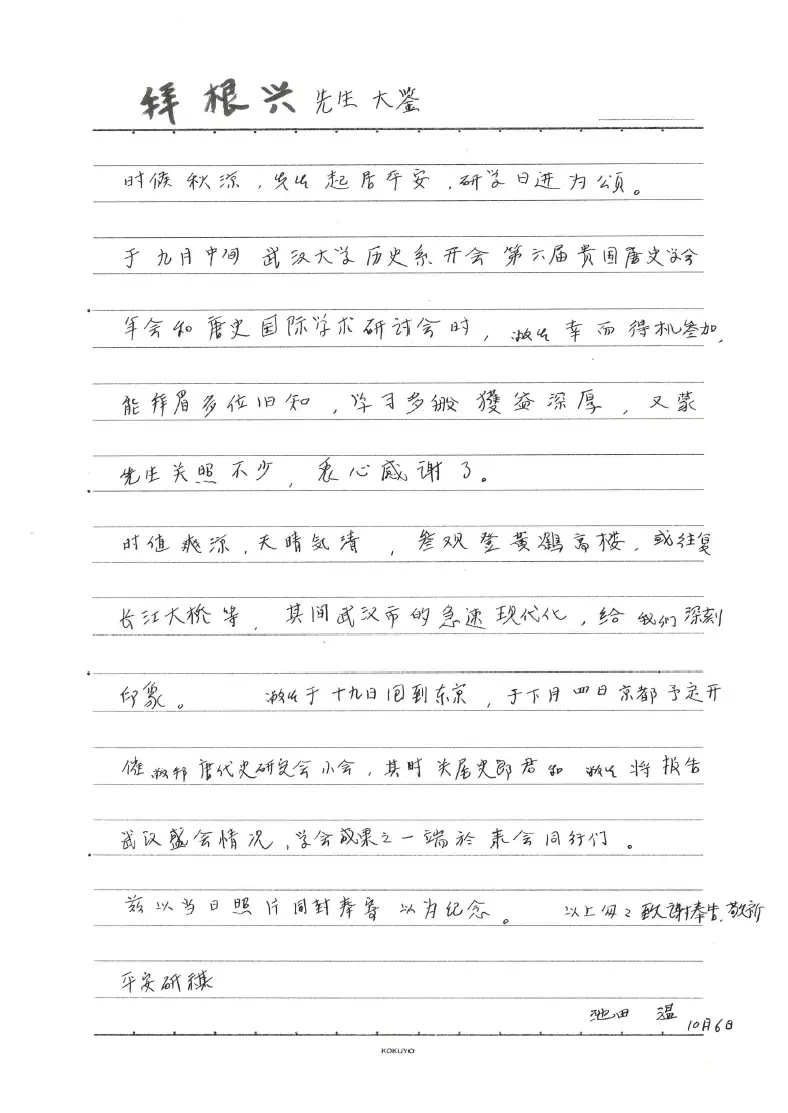 拜根兴先生大鉴
时候秋凉,先生起居平安,研学日进为颂。
于九月中间 武汉大学历史系开会 第六届贵国唐史学会
年会和唐史国际学术研讨会时,敝生幸而得机参加,
能拜眉多位旧知,许可多般獲益深厚,又蒙
先生关照不少,衷心感谢了。
时值爽凉,天晴気清,参观登黄鶴高楼,或往复
长江大桥等,其间武汉市的急速现代化,给我们深刻
印象。 敝生于十九日回到东京,于下月四日京都予定开
催敝邦唐代史研究会小会,其时 尾史郎君和敝生将报告
武汉盛会情况,学会成果之一端於来会同行们。
兹以当日照片同封奉寄以为纪念。 以上匆々致谢奉告,敬祈
平安研祺
池田 温
10月6日
KOKUYO